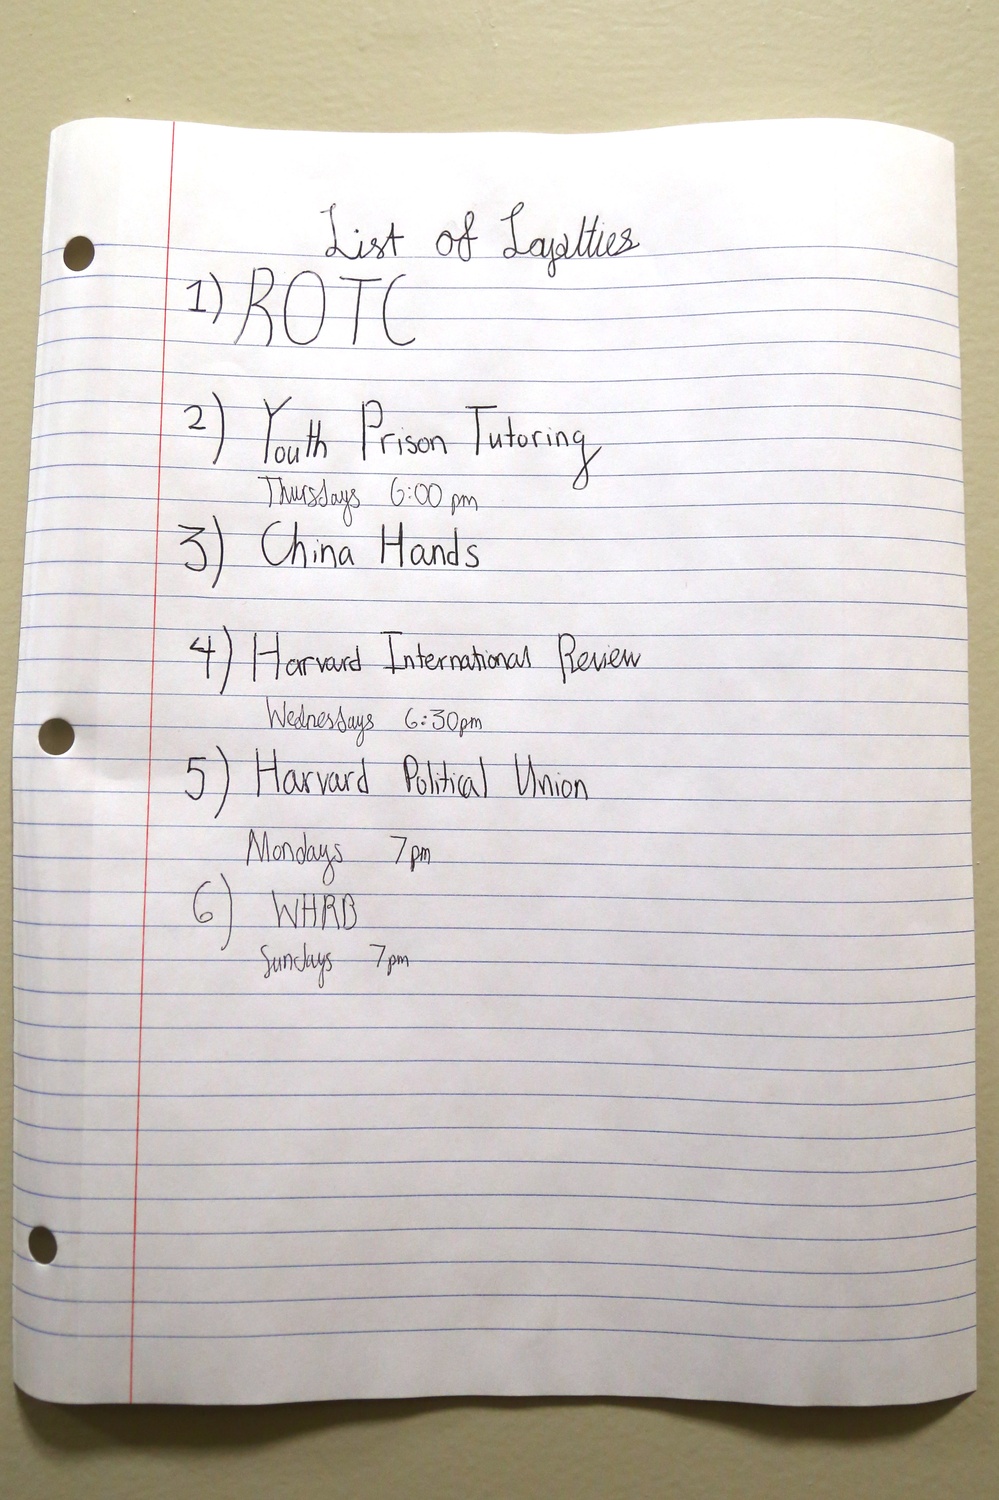 List of Loyalties
1) ROTC
2) Youth Prison Tutoring
Thursdays 6:00 pm
3) China Hands
4) Harvard International Review
Wednesdays 6:30pm
5) Harvard Political Union
Mondays 7pm
6) WHRB
Sundays 7pm